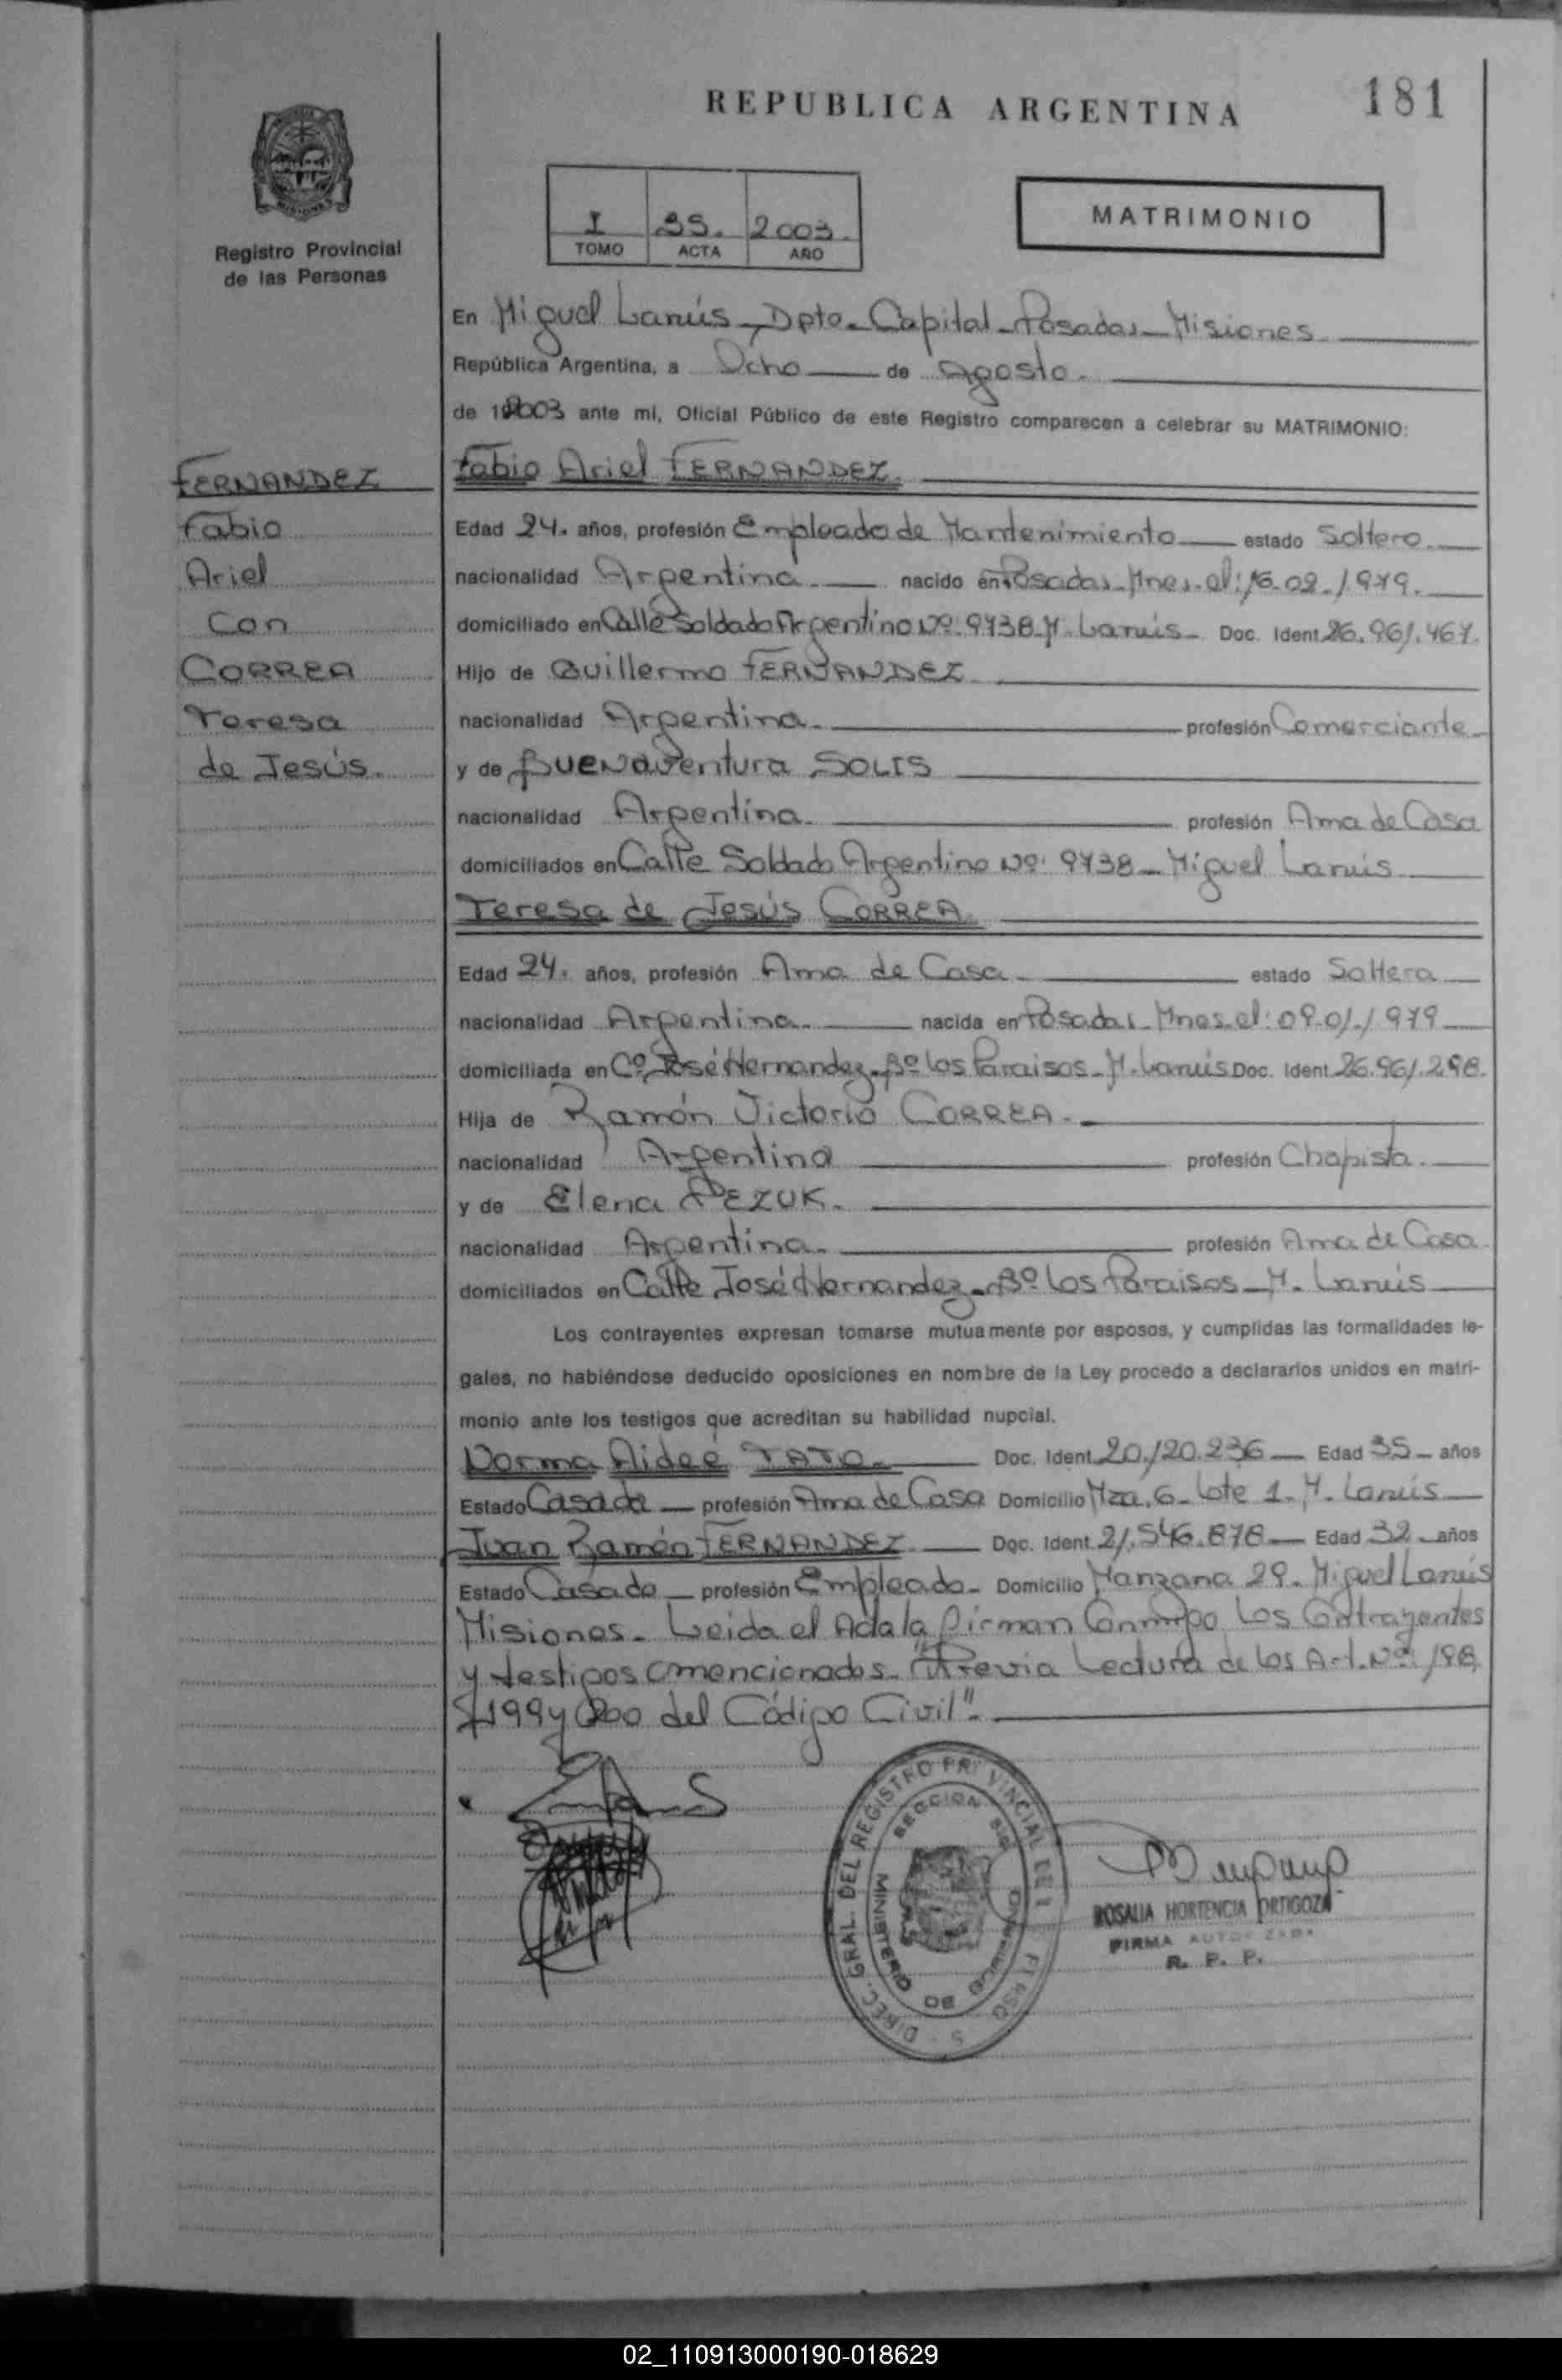 REPUBLICA ARGENTINA
181
MISIONES
Registro Provincial
de las Personas
I 2003.
TOMO ACTA AÑO
MATRIMONIO
En Miguel Lanús - Dpto - Capital - Posadas - Misiones
República Argentina, a Ocho de Agosto.
de 2003 ante mí, Oficial Público de este Registro comparecen a celebrar su MATRIMONIO:
FERNANDEZ
Fabio
Ariel
Con
CORREA
Teresa
de Jesús.
Fabio Ariel FERNANDEZ.
Edad 24. años, profesión Empleado de Mantenimiento estado Soltero.
nacionalidad Argentina. nacido en Posadas - Mnes. el: 16-02-1979.
domiciliado en Calle Soldado Argentino Nº: 9738 - M. Lanús - Doc. Ident. 26.961.467.
Hijo de Guillermo FERNANDEZ
nacionalidad Argentina. profesión Comerciante
y de BUENAVentura SOLIS
nacionalidad Argentina. profesión Ama de Casa
domiciliados en Calle Soldado Argentino Nº: 9738 - Miguel Lanús
Teresa de Jesús CORREA
Edad 24. años, profesión Ama de Casa - estado Soltera
nacionalidad Argentina. nacida en Posadas - Mnes. el: 09-01-1979
domiciliada en Cº José Hernandez - Bº Los Paraisos - M. Lanús Doc. Ident. 26.961.298.
Hija de Ramón Victorio CORREA.
nacionalidad Argentina profesión Chapista.
y de Elena PEZUK.
nacionalidad Argentina. profesión Ama de Casa.
domiciliados en Calle José Hernandez - Bº Los Paraisos - M. Lanús
Los contrayentes expresan tomarse mutuamente por esposos, y cumplidas las formalidades le-
gales, no habiéndose deducido oposiciones en nombre de la Ley procedo a declararlos unidos en matri-
monio ante los testigos que acreditan su habilidad nupcial.
Norma Aideé TATO. Doc. Ident. 20.120.236 Edad 35 años
Estado Casada profesión Ama de Casa Domicilio Mza. 6 - Lote 1 - M. Lanús
Juan Ramón FERNANDEZ Doc. Ident. 21.546.878 Edad 32 años
Estado Casado profesión Empleado - Domicilio Manzana 29 - Miguel Lanús
Misiones - Leida el Acta la firman Conmigo Los Contrayentes
y testigos mencionados - "Previa Lectura de los Art. Nº: 198,
199 y 200 del Código Civil".
DIREC. GRAL. DEL REGISTRO
SECCION
MINISTERIO DE GOBIERNO
ROSALIA HORTENCIA ORTIGOZA
FIRMA AUTORIZADA
R. P. P.
02_110913000190-018629